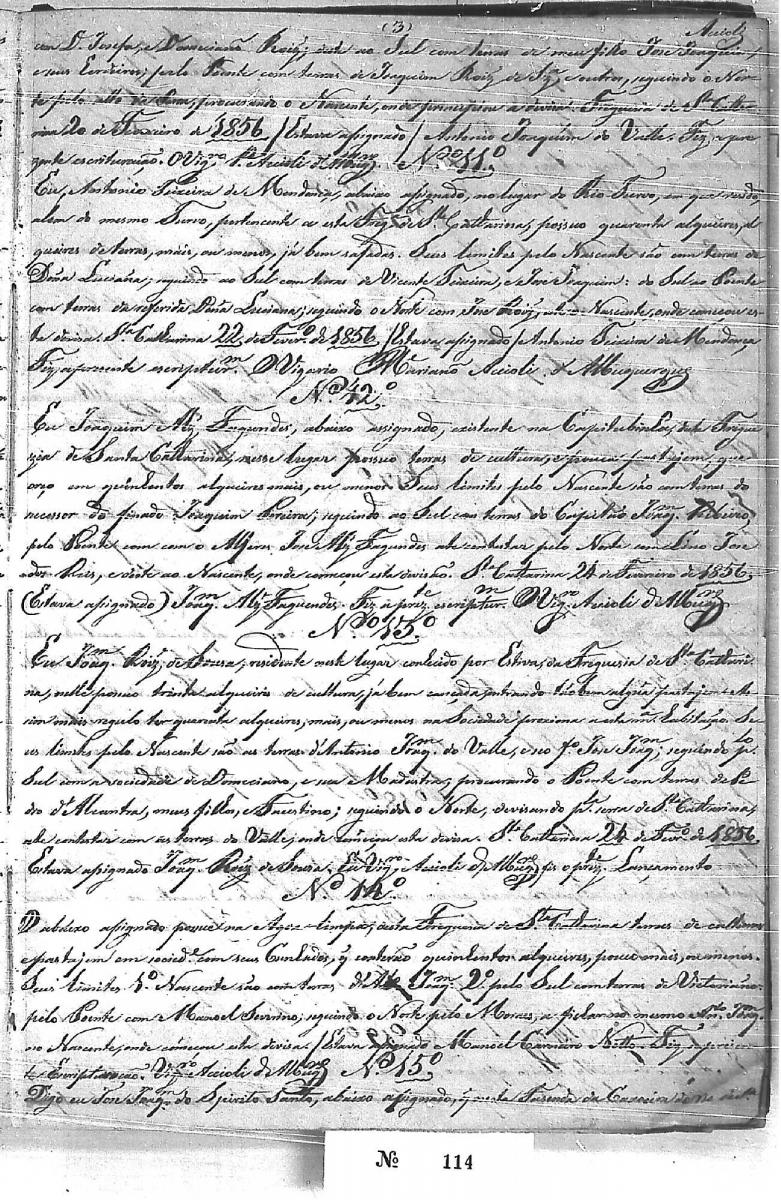 (3) Accioli
com D. Josefa, e Domeciano Roiz; este ao Sul com terras de meu filho José Joaquim,
e seus Erdeiros; pelo Poente com terras de Joaquim Roiz de Sz.ª e outros, seguindo o Nor-
te pelo alto da Serra, procurando o Nascente, onde principiou a divisa. Freguesia de S.ta Catha-
rina 20 de Fevereiro de 1856 / Estava assignado / Antonio Joaquim do Valle. Fiz a pre-
zente escrituração. O Vig.ro M. Accioli d'Albuq.e N.º 11.º
Eu, Antonio Teixeira de Mendonça, abaixo assignado, no lugar do Rio Turvo, em que resido,
alem do mesmo Turvo, pertencente a esta Freg.ª de S.ta Catharina, possuo quarenta alqueires, al-
queires de terras, mais, ou menos, já bem safadas. Seus limites pelo Nascente são com terras de
Dona Luciana; seguindo ao Sul com terras de Vicente Teixeira, e José Joaquim: do Sul ao Poente
com terras da referida Dona Luciana; seguindo o Norte com José Roiz, Nascente, onde começou es-
ta divisa. S.ta Catharina 22 de Fever.º de 1856 / Estava assignado / Antonio Teixeira de Mendonça
Fiz a prezente escriptur.m O Vigario Mariano Accioli d'Albuquerque
N.º 12.º
Eu Joaquim Alz' Fagundes, abaixo assignado, existente na Capitubinha, desta Fregue-
zia de Santa Catharina, nesse lugar possuo terras de cultura, e pouca pastajem, que
orço em quinhentos alqueires mais, ou menos. Seus limites pelo Nascente são com terras do
sucessor do finado Joaquim Pereira; seguindo ao Sul com terras do Capitão Joaq.m Ribeiro,
pelo Poente com com o Alferes José Alz' Fagundes, ate contestar pelo Norte com José
dos Reis, e deste ao Nascente, onde começou esta divisão. S.ta Catharina 24 de Fevereiro de 1856
(Estava assignado) Joaq.m Alz' Fagundes. Fiz a prez.te escriptur.m O Vig.ro Accioli d'Albuq.e
N.º 13.º
Eu Joaq.m Roiz de Souza, residente neste lugar conhecido por Estiva, da Freguesia de S.ta Cathari-
na, nelle possuo trinta alqueires de cultura, já bem cançada, entrando tãobem algũa pastajem.
mais regulo ter quarenta alqueires, mais, ou menos na Sociedade proxima a esta m.ª habitação. Se-
us limites pelo Nascente são as terras d'Antonio Joaq.m do Valle, e seo f.º José Joaq.m; seguindo p.lo
Sul com a sociedade de Domeciano, e sua Madrasta; procurando o Poente com terras de Pe-
dro d'Alcantra, meus filhos, e Faustino; seguindo o Norte, devisando p.la serra de S.ta Catharina,
ate contestar com as terras do Valle, onde começou esta divisa. S.ta Catharina 24 de Fever.º de 1856
Estava assignado Joaq.m Roiz de Souza. Eu Vig.ro Accioli d'Albuq.e fiz o prez.e Lançamento
N.º 14.º
O abaixo assignado possue na Agoa-limpa, desta Freguesia de S.ta Catharina terras de cultura
e pastajem em socied.e com seus Cunhados, q' conterão quinhentos alqueires, pouco mais, ou menos.
Seus limites 1.º Nascente são com terras d'An.to Joaq.m 2.º pelo Sul com terras de Victoriano
pelo Poente com Manoel Severino; seguindo o Norte pelo Moraes, a fichar no mesmo An.to Joaq.m
no Nascente, onde começou esta divisa. / Estava assignado / Manoel Carneiro Netto. Fiz a prezen-
te Escripturação. Vig.ro Accioli d'Albuq.e N.º 15.º
Digo eu José Joaq.m do Espirito Santo, abaixo assignado, q' nesta Fazenda da Caxoeira do
Nº 114